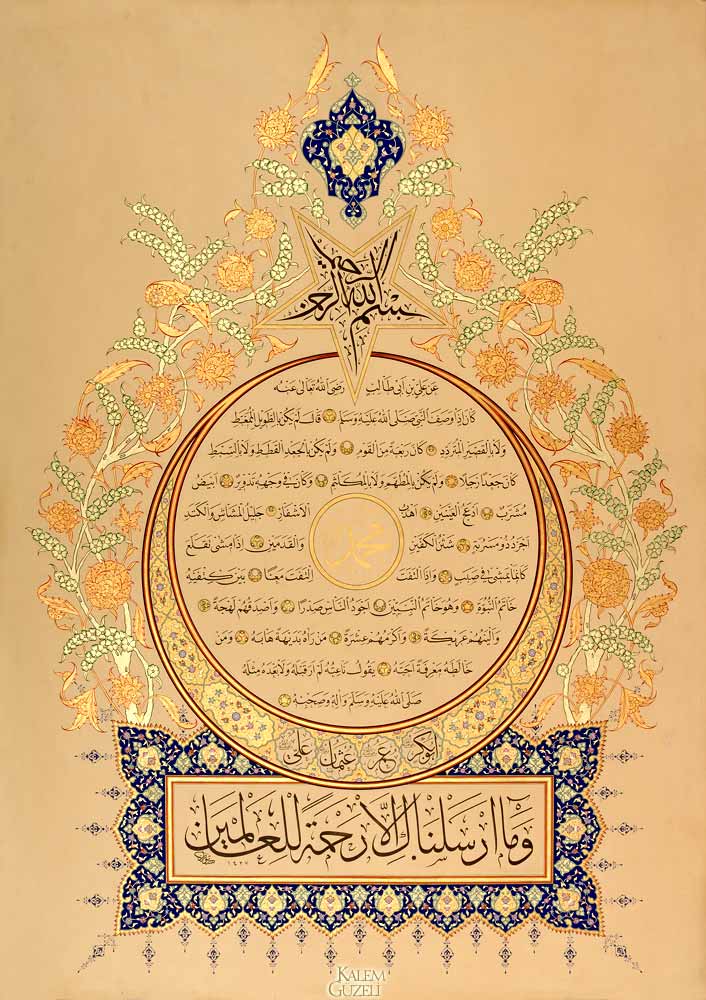 بسم الله الرحمن الرحيم
عن علي بن ابي طالب رضي الله تعالى عنه
كان اذا وصف النبي صلى الله عليه وسلم قال لم يكن بالطويل الممغط
ولا بالقصير المتردد كان ربعة من القوم ولم يكن بالجعد القطط ولا بالسبط
كان جعدا رجلا ولم يكن بالمطهم ولا بالمكلثم وكان في وجهه تدوير ابيض
مشرب ادعج العينين اهدب الاشفار جليل المشاش والكتد
محمد
اجرد ذو مسربة شثن الكفين والقدمين اذا مشى تقلع
كانما يمشي في صبب واذا التفت التفت معا بين كتفيه
خاتم النبوة وهو خاتم النبيين اجود الناس صدرا واصدقهم لهجة
والينهم عريكة واكرمهم عشرة من رآه بديهة هابه ومن
خالطه معرفة احبه يقول ناعته لم ار قبله ولا بعده مثله
صلى الله عليه وسلم وآله وصحبه
ابوبكر عمر عثمان علي
وما ارسلناك الا رحمة للعالمين
١٤٢٧
KALEM
GUZELİ